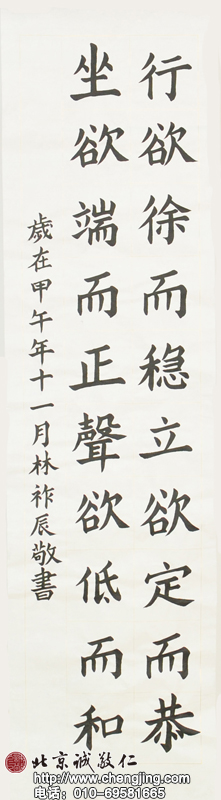 行欲徐而稳立欲定而恭
坐欲端而正聲欲低而和
歲在甲午年十一月林祚辰敬書
北京诚敬仁
http://www.chengjing.com
电话：010-69581665